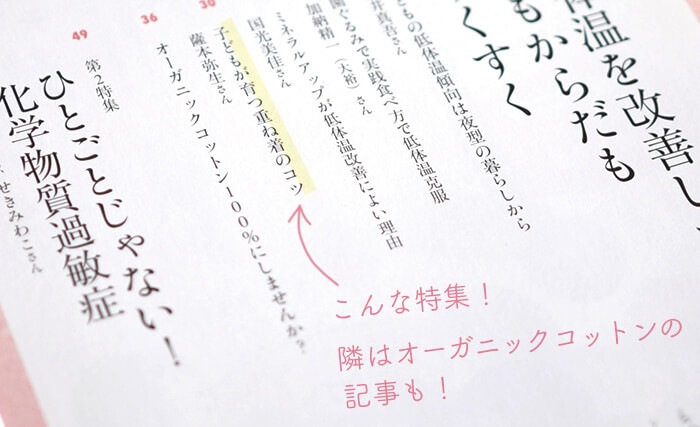 体温を改善し
もからだも
くすく
どもの低体温傾向は夜型の暮らしから
井真吾さん
園ぐるみで実践食べ方で低体温克服
加納精一(大裕)さん
ミネラルアップが低体温改善によい理由
国光美佳さん
子どもが育つ重ね着のコツ
薩本弥生さん
オーガニックコットン100%にしませんか?
30
36
49
第2特集
ひとごとじゃない!
化学物質過敏症
せきみわこさん
こんな特集!
隣はオーガニックコットンの
記事も!